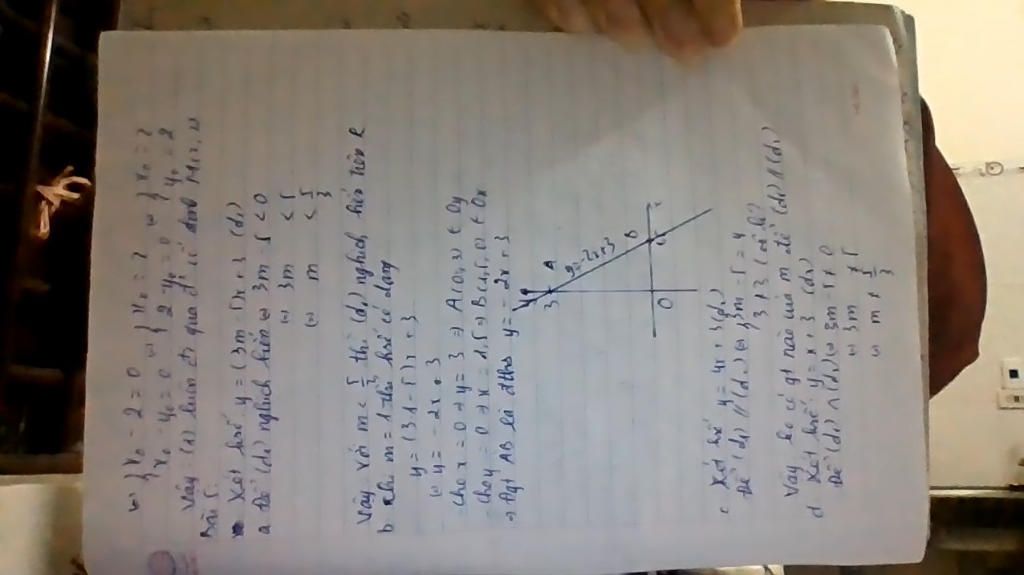 ⇔ { x₀ - 2 = 0 ⇔ { x₀ = 2
x₀ - y₀ = 0 ⇔ 2 - y₀ = 0 ⇔ y₀ = 2
Vậy (1) luôn đi qua
Bài 5.
Xét hsố y = (3m - 5)x + 3 (d₁)
a. Để (d₁) nghịch biến ⇔ 3m - 5 < 0
⇔ 3m < 5
⇔ m < 5/3
Vậy với m < 5/3 thì (d₁) nghịch biến trên R
b. Khi m = 1 thì hsố có dạng
y = (3.1 - 5)x + 3
⇔ y = -2x + 3
cho x = 0 ⇒ y = 3 ⇒ A(0, 3) ∈ Oy
cho y = 0 ⇒ x = 1,5 ⇒ B(1,5, 0) ∈ Ox
⇒ Đgt AB là đths y = -2x + 3
y
3 A
y = -2x + 3
B
O 1,5 x
c. Xét hsố y = 4x + 3 (d₂)
Để (d₁) // (d₂) ⇔ { 3m - 5 = 4
3 ≠ 3 (vô lí)
Vậy ko có gt nào của m để (d₁) // (d₂)
d. Xét hsố y = x + 3 (d₃)
Để (d₁) ∩ (d₃) ⇔ 3m - 5 ≠ 0
⇔ 3m ≠ 5
⇔ m ≠ 5/3